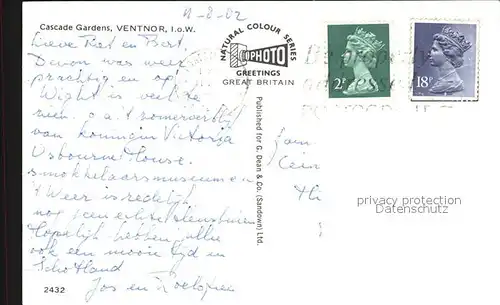 11-8-82
Cascade Gardens, VENTNOR, I.o.W.
Lieve Riet en Bert.
Devon was weer
prachtig en op
Wight is veel te
zien. o.a. 't zomerverblijf
van koningin Victoria
Osbourne House.
smokkelaarsmuseum en
't Weer is redelijk
nog geen echte
Hopelijk hebben jullie
ook een mooie tijd in
Schotland
Jos en
2432
NATURAL COLOUR SERIES
PHOTO
GREETINGS
GREAT BRITAIN
Published for G. Dean & Co. (Sandown) Ltd.
2P
18P
privacy protection
Datenschutz